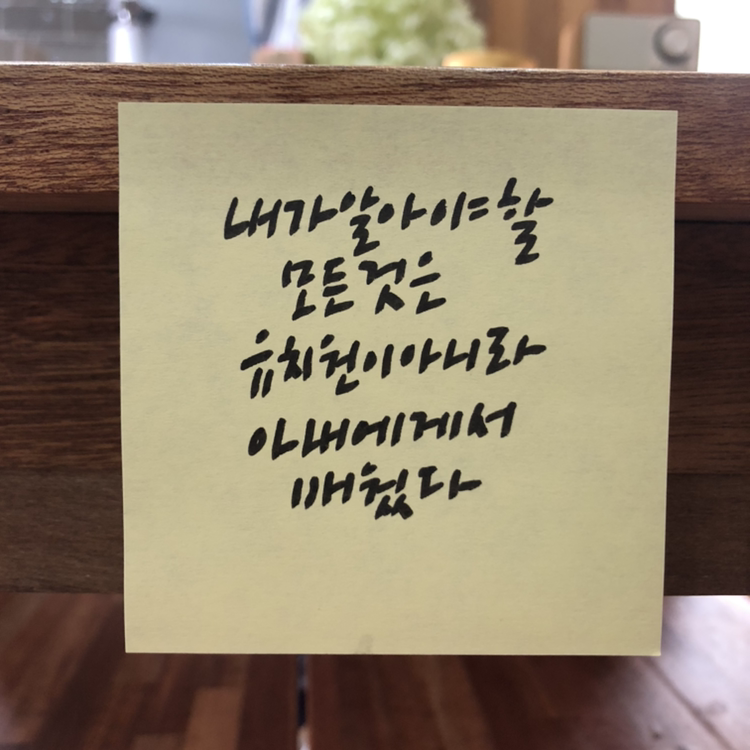 내가알아야할
모든것은
유치원이아니라
아내에게서
배웠다